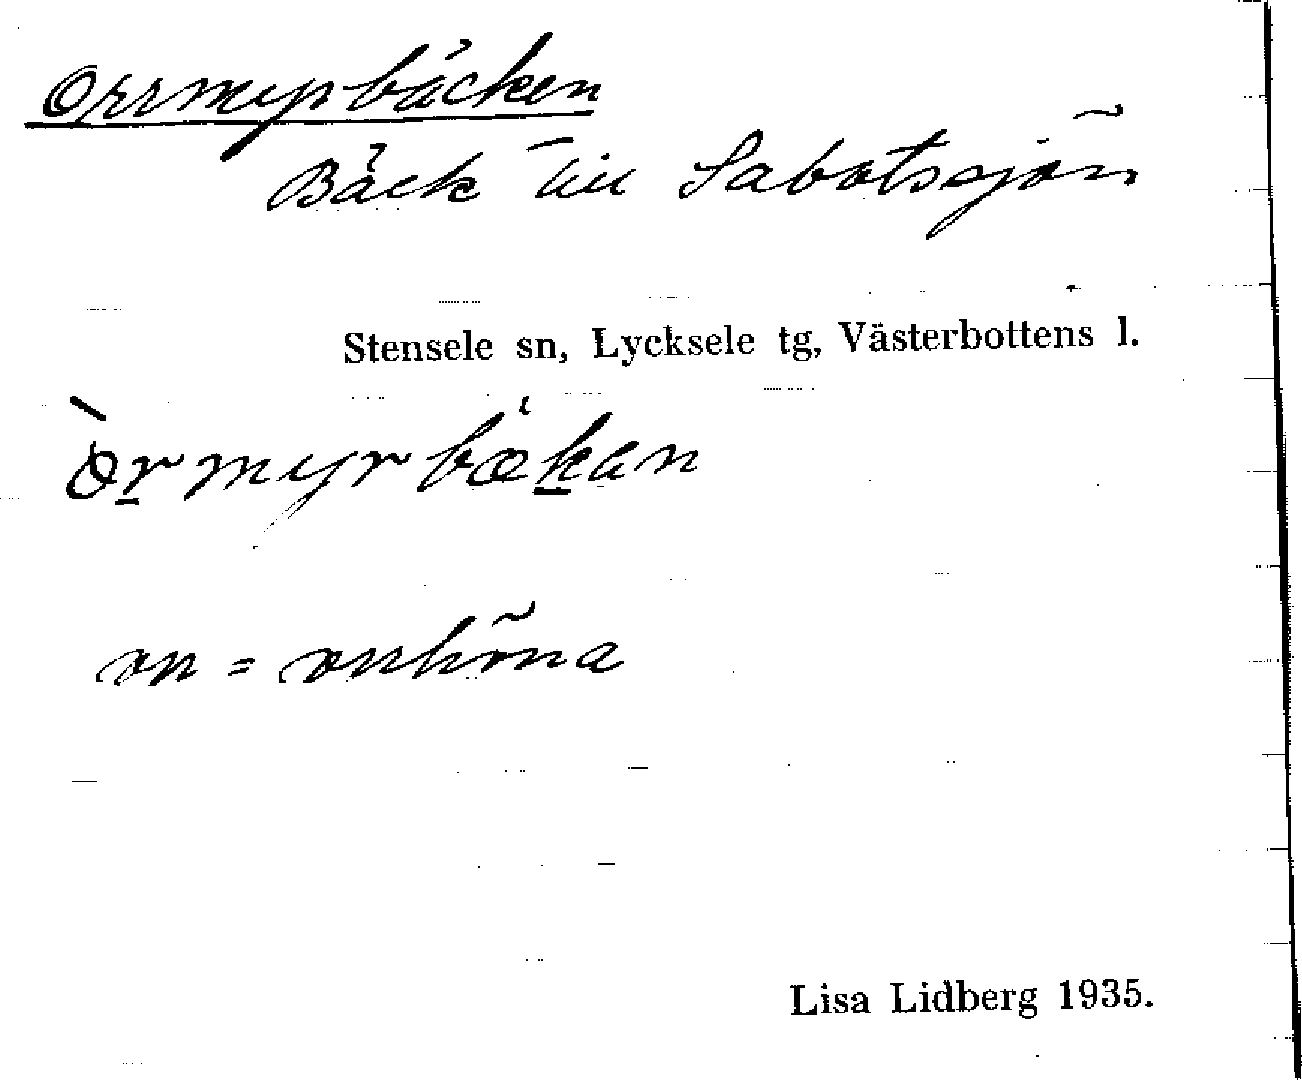 Orrmyrbäcken
Bäck till Sabotssjön
Stensele sn, Lycksele tg, Västerbottens l.
òrmyrbækan
orr = orrhöna
Lisa Lidberg 1935.